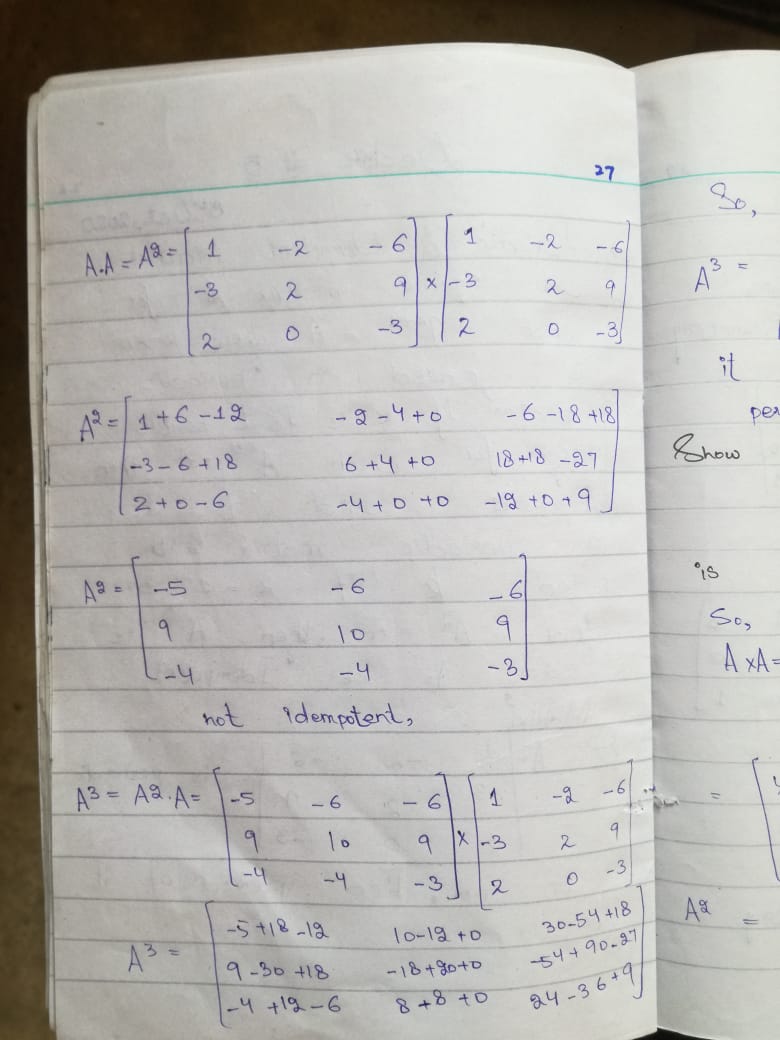 27
A.A = A2 = [ 1 -2 -6 ] × [ 1 -2 -6 ]
[ -3 2 9 ] [ -3 2 9 ]
[ 2 0 -3 ] [ 2 0 -3 ]
A2 = [ 1+6-12 -2-4+0 -6-18+18 ]
[ -3-6+18 6+4+0 18+18-27 ]
[ 2+0-6 -4+0+0 -12+0+9 ]
A2 = [ -5 -6 -6 ]
[ 9 10 9 ]
[ -4 -4 -3 ]
not idempotent,
A3 = A2.A = [ -5 -6 -6 ] × [ 1 -2 -6 ]
[ 9 10 9 ] [ -3 2 9 ]
[ -4 -4 -3 ] [ 2 0 -3 ]
A3 = [ -5+18-12 10-12+0 30-54+18 ]
[ 9-30+18 -18+20+0 -54+90-27 ]
[ -4+12-6 8+8+0 24-36+9 ]
So,
A3 =
it
per
Show
is
So,
A×A=
= [
A2 =